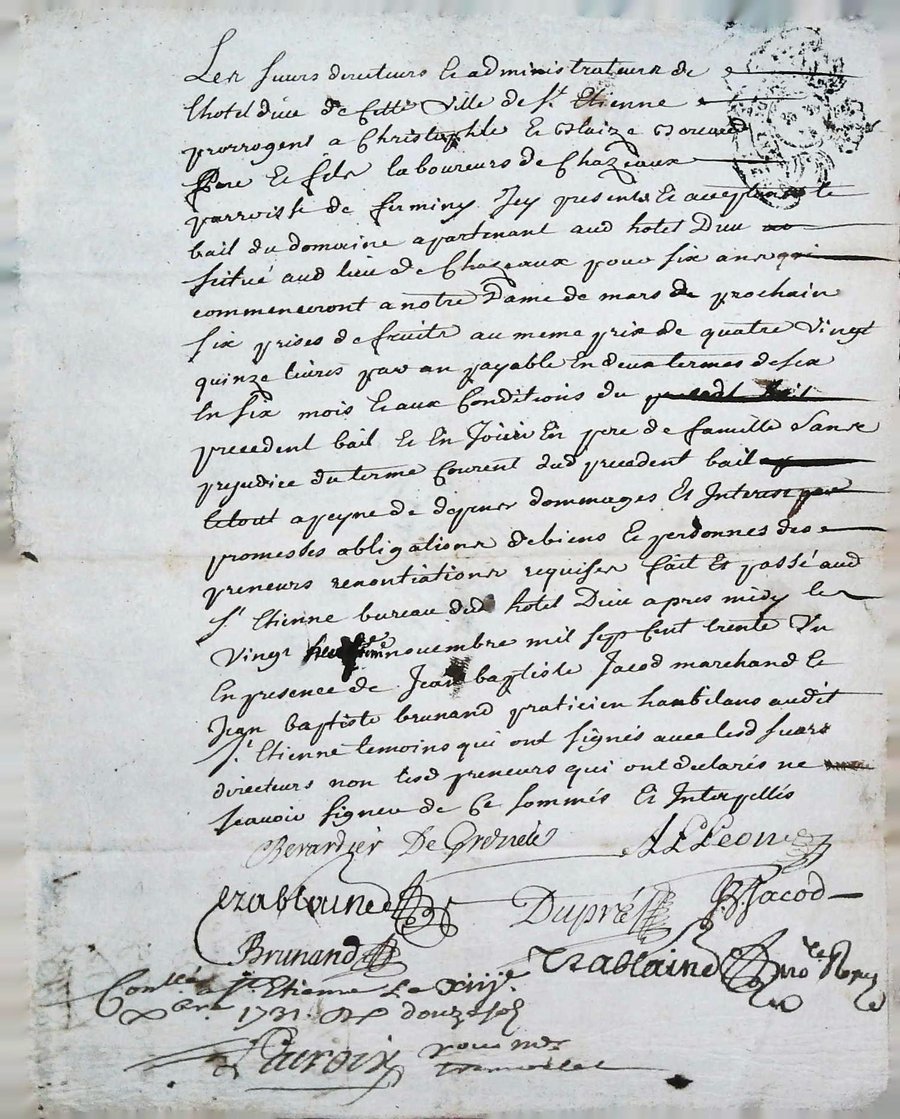 Les sieurs directeurs & administrateurs de
lhotel dieu de cette ville de St. Etienne
prorrogent a Christophle Et Blaize
pere & fils laboureurs de Chazeaux
parroisse de firminy Icy presents & acceptants le
bail du domaine apartenant aud hotel Dieu
scitué aud lieu de Chazeaux pour six ans qui
commenceront a notre Dame de mars de prochain
six prises de fruits au meme prix de quatre vingt
quinze livres par an payable En deux termes de six
En six mois & aux Conditions du
precedent bail Et En Jouir En pere de famille Sans
prejudice du terme Courent dud precedent bail
letout apeyne de depens dommages Et Interest par
promesses obligations de biens & personnes des
preneurs renontiations requises fait Et passé aud
St Etienne bureau dud hotel Dieu apres midy le
Vingt novembre mil sept Cent trente Un
En presence de Jean baptiste Jacod marchand &
Jean baptiste brunand praticien habitans audit
St. Etienne temoins qui ont signés avec lesd sieurs
directeurs non lesd preneurs qui ont declarés ne
scavoir signer de Ce sommés Et Interpellés
Berardier De
Dupré JBJacod
Brunand
St. Etienne Le xiiije.
1731. douze sols